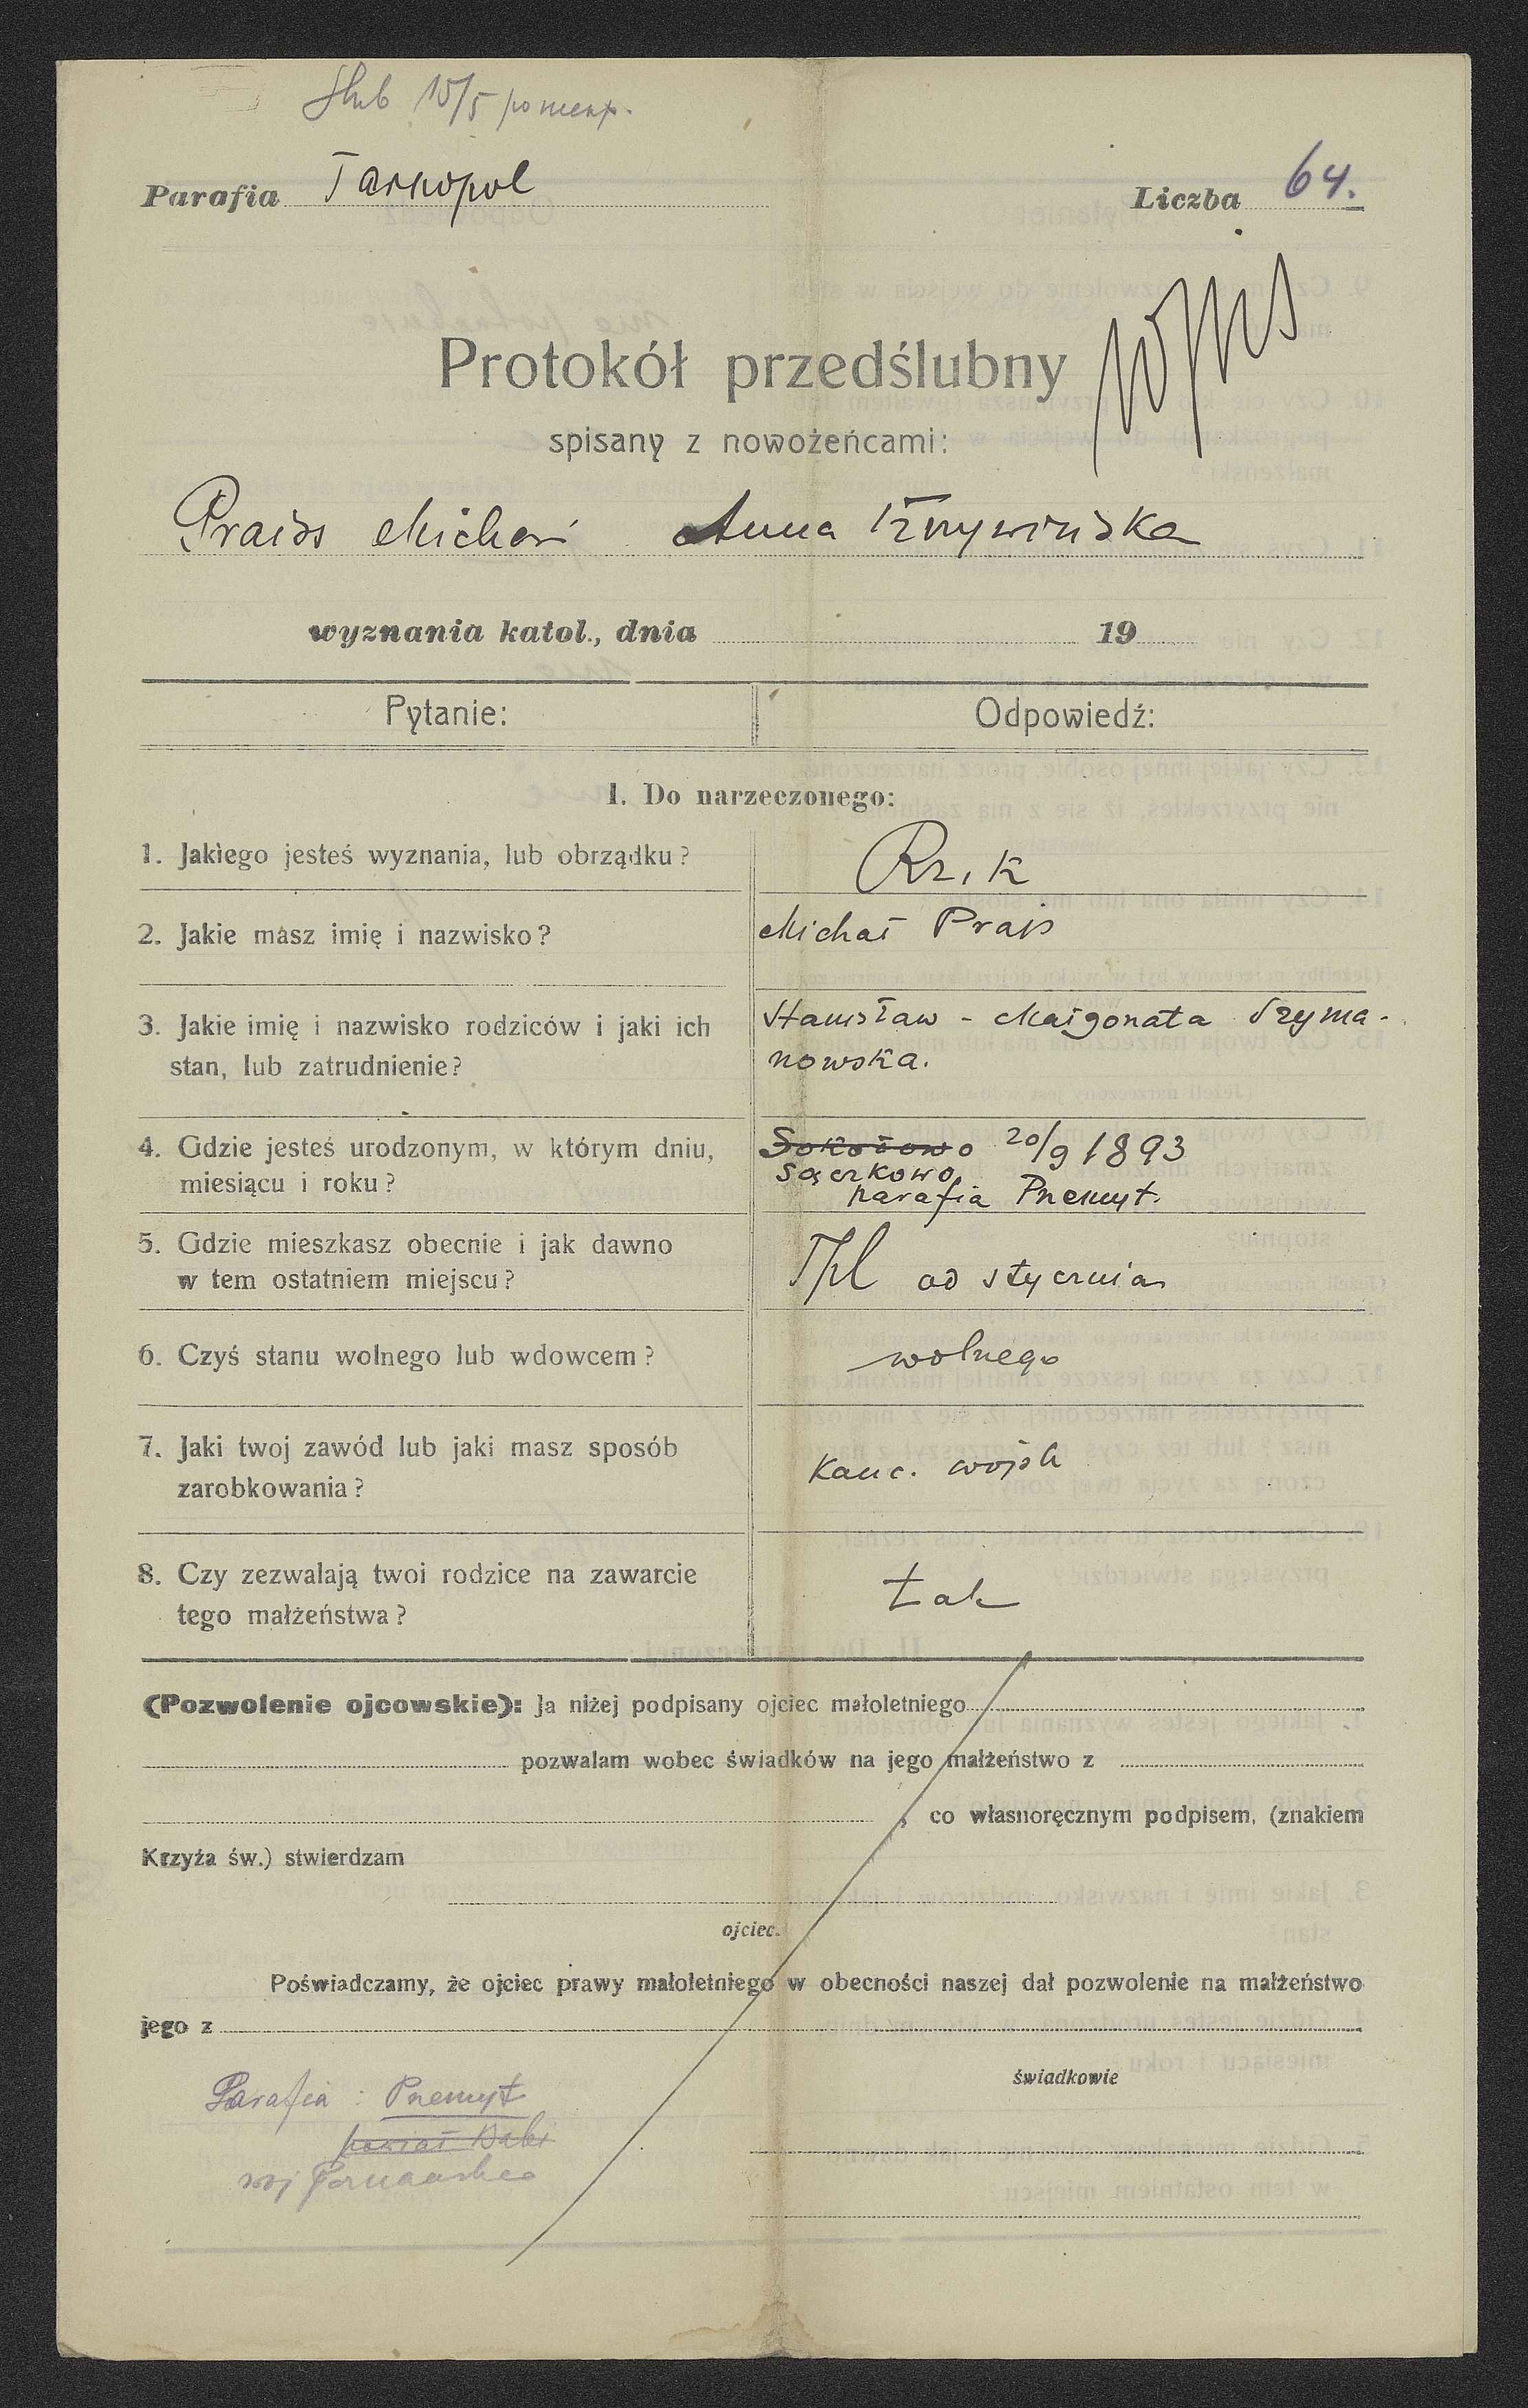 Ślub 15/5
Parafia Tarnopol
Liczba 64.
Protokół przedślubny
spisany z nowożeńcami:
Praiss Michał Anna Krzywińska
wyznania katol., dnia 19
Pytanie: Odpowiedź:
I. Do narzeczonego:
1. Jakiego jesteś wyznania, lub obrządku? Rz. k
2. Jakie masz imię i nazwisko? Michał Prajs
3. Jakie imię i nazwisko rodziców i jaki ich Stanisław - Małgorzata Szyma-
stan, lub zatrudnienie? nowska.
4. Gdzie jesteś urodzonym, w którym dniu, Sokołowo 20/9 1893
miesiącu i roku? Sączkowo
parafia Przemyt.
5. Gdzie mieszkasz obecnie i jak dawno
w tem ostatniem miejscu? Tpl od stycznia
6. Czyś stanu wolnego lub wdowcem? wolnego
7. Jaki twoj zawód lub jaki masz sposób
zarobkowania? kanc. wojsk
8. Czy zezwalają twoi rodzice na zawarcie
tego małżeństwa? tak
(Pozwolenie ojcowskie): Ja niżej podpisany ojciec małoletniego
pozwalam wobec świadków na jego małżeństwo z
, co własnoręcznym podpisem, (znakiem
Krzyża św.) stwierdzam
ojciec.
Poświadczamy, że ojciec prawy małoletniego w obecności naszej dał pozwolenie na małżeństwo
jego z
świadkowie
Parafia : Przemyt
powiat
woj Poznańskie